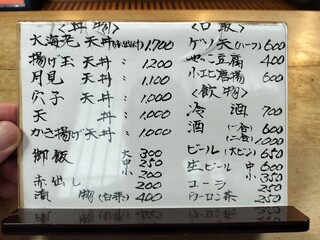 <丼物>
大海老天丼(赤出し付) 1,700
揚げ玉天丼 〃 1,200
月見天丼 〃 1,100
穴子天丼 〃 1,000
天丼 〃 1,000
かき揚げ天丼 〃 1,000
御飯 大 300
中 250
小 200
赤出し 200
漬物(白菜) 400
<一品>
ゲソ天(ハーフ) 600
冷やっこ豆腐 400
小エビ唐揚 600
<飲物>
冷酒 700
酒 (一合) 600
(二合) 1000
ビール(大ビン) 650
生ビール 中 650
小 350
コーラ 250
ウーロン茶 250